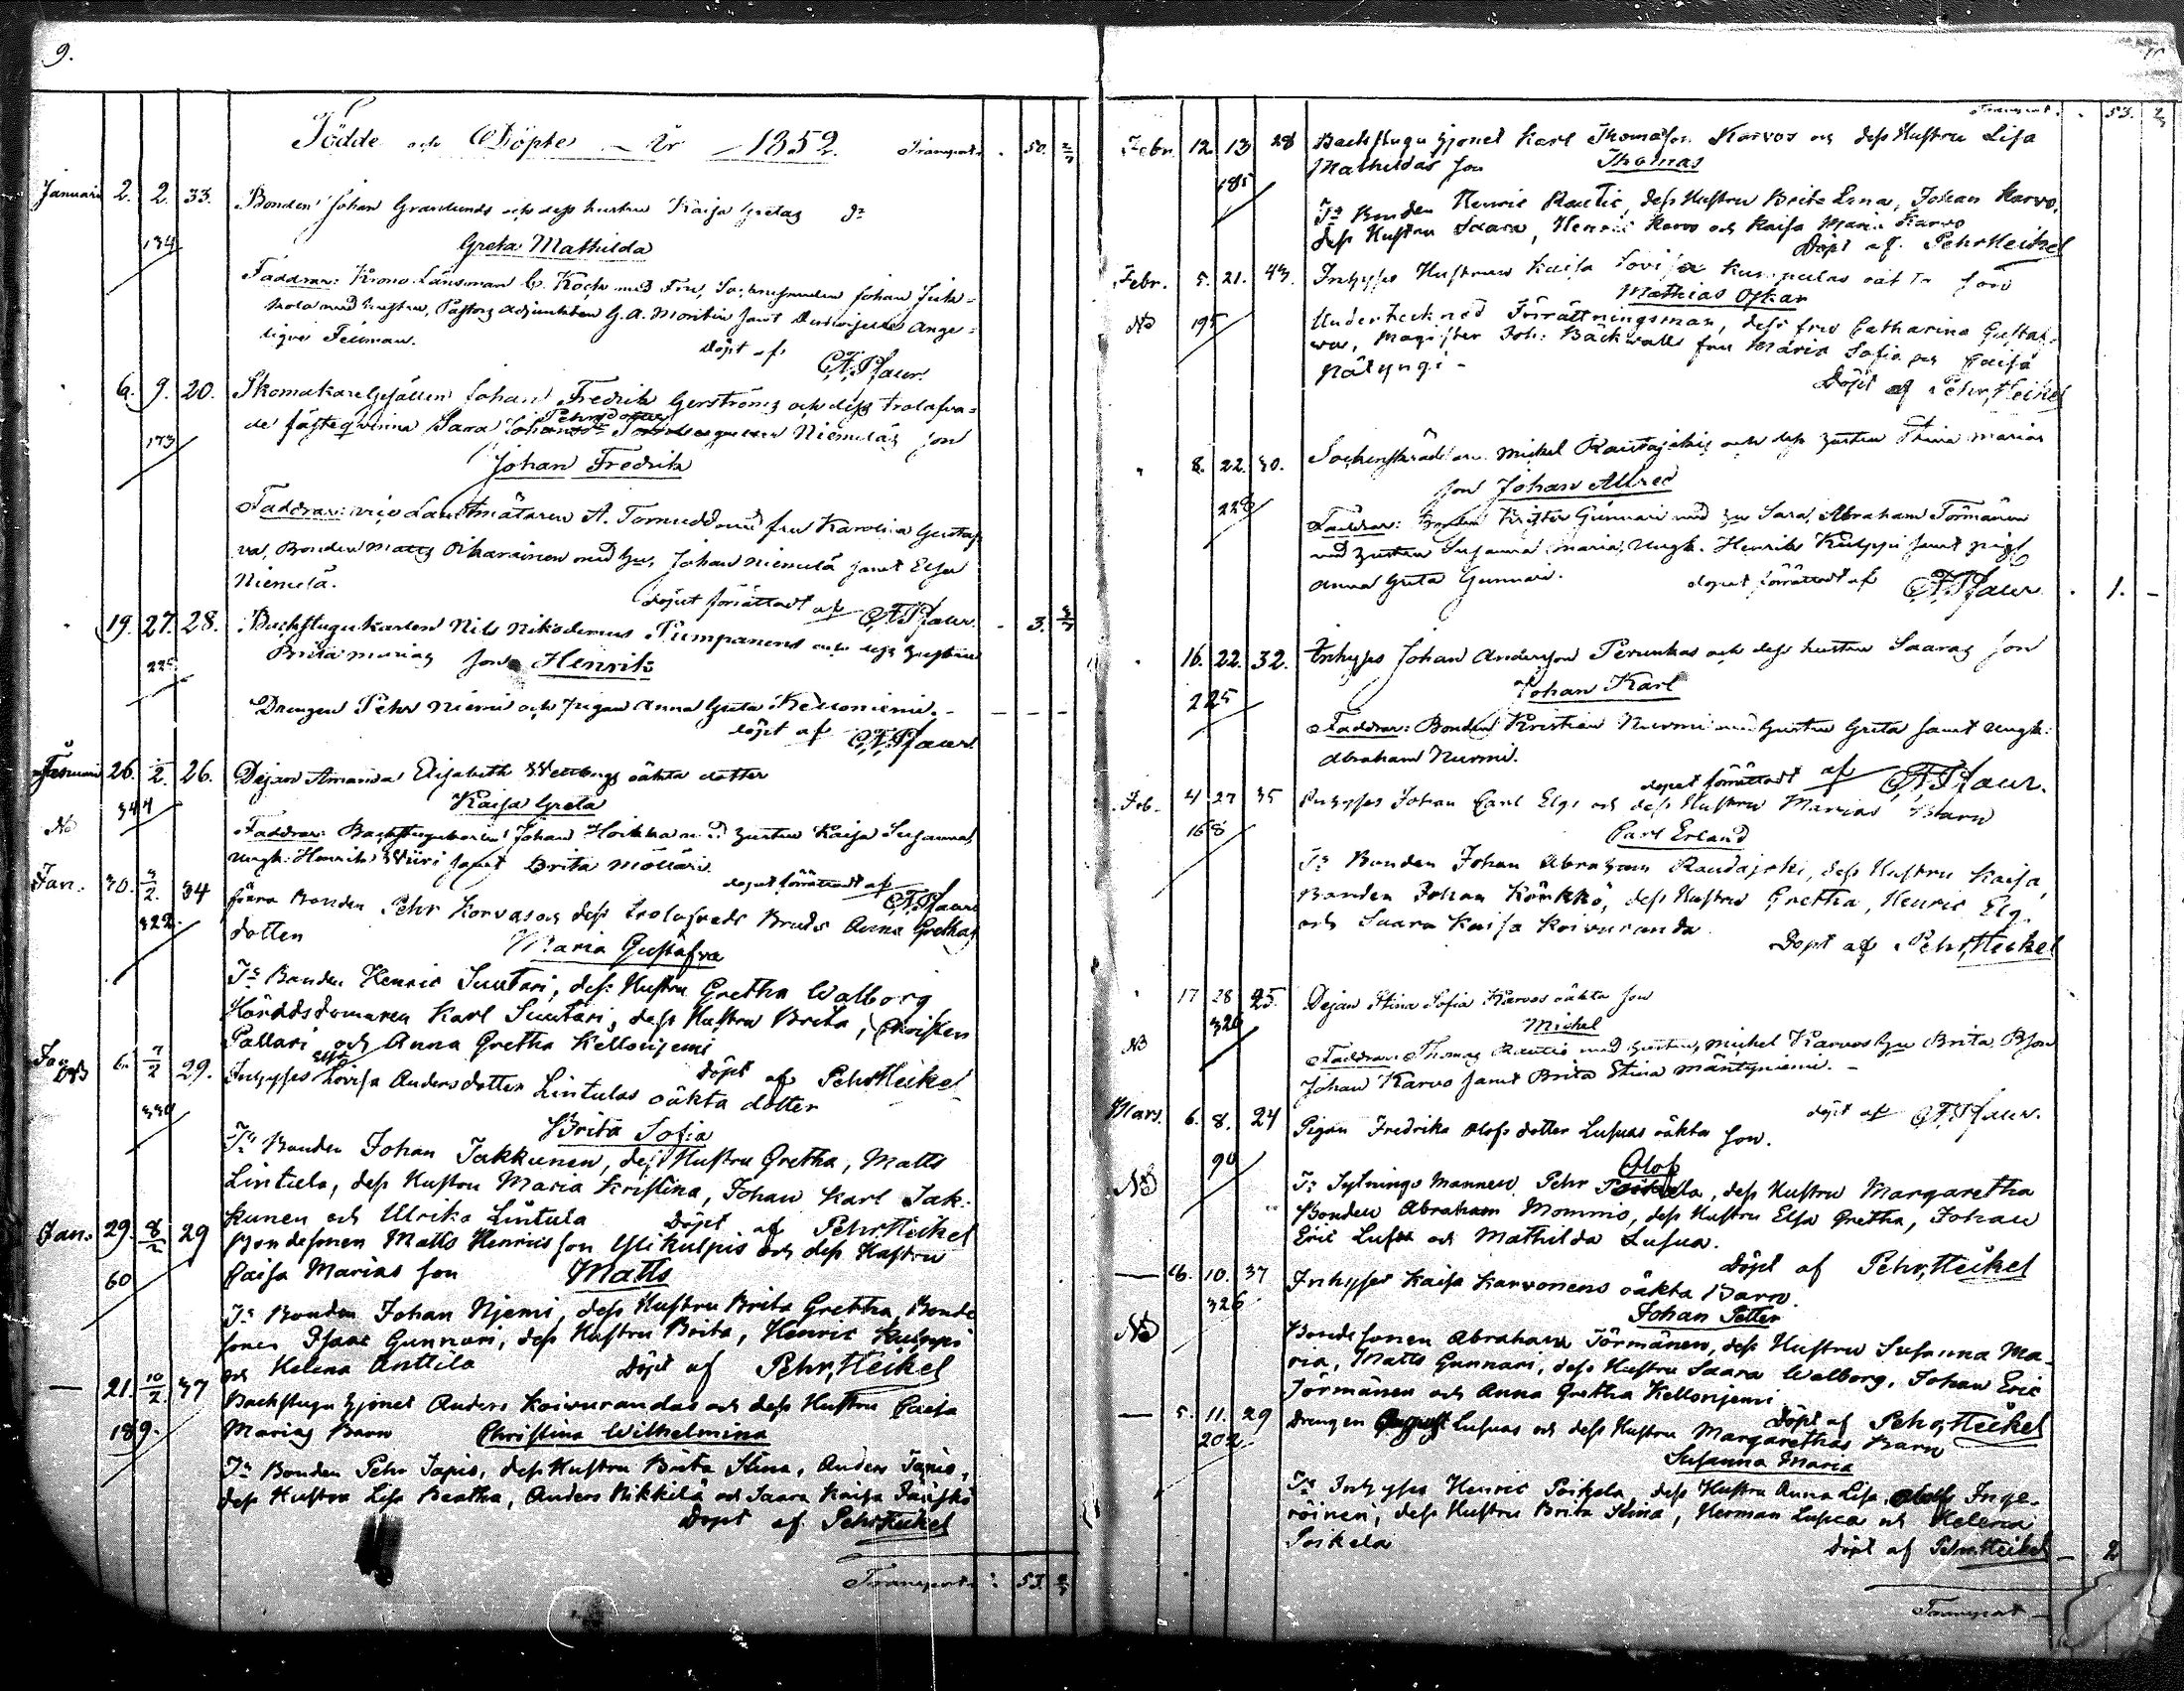 9.
Födde och Döpte År 1852. Transport 50.
Januari 2. 2. 33. Bonden Johan Granlunds och dess hustru Kaisa Gretas dr
134 Greta Mathilda
Faddrar: Krono Länsman C. Koch med Fru, Johan
med hustru, Pastors adjunkten G. A. samt
Fellman. döpt af
6. 9. 20. Skomakare Gesällen Johan Fredrik Gerströms och dess trolofva=
173 de fästeqvinna Sara Pehrsdotter Niemeläs son
Johan Fredrik
Faddrar: Landtmätaren A. Fru Karolina Gustaf
va, Bonden Matts Pikarainen med hu, Johan Niemelä samt Elsa
Niemelä.
dopet förrättadt af
19. 27. 28. Backstugukarlen Nils Nikodemus Pumpanens och dess hustru
225 Brita Marias son Henrik
Drengen Pehr Niemi och pigan Anna Greta Kelloniemi.
döpt af
Januari 26. 1/2. 26. Dejan Amanda Elisabeth oäkta dotter
344 Kaisa Greta
No
Faddrar: Johan Hoikka med hustru Kaisa Susanna,
ungk: Henrik Wiiri samt Brita Mölläri.
dopet förrättadt af
Jan. 30. 3/2. 34 Bonden Pehr Korvas och dess trolofvade Bruds Anna Grethas
322. dotter Maria Gustafva
Fr Bonden Henric Suutari, dess Hustru Gretha Walborg
Häradsdomaren Karl Suutari, dess Hustru Brita, Christer
Pallari och Anna Gretha Kellonjemi
Döpt af Pehr, Heikel
6. 7/2 29. Inhyses Lovisa Andersdotter Lintulas oäkta dotter
330 Brita Sofia
Fr Bonden Johan Jakkunen, dess Hustru Gretha, Matts
Lintula, dess Hustru Maria Kristina, Johan Karl Jak-
kunen och Ulrika Lintula Döpt af Pehr, Heikel
Jan. 29. 8/2 29 Bondesonen Matts Henricsson Ylikulpis och dess Hustru
60 Caisa Marias son Matts
Fr Bonden Johan Njemi, dess Hustru Brita Gretha, Bonde
sonen Isaac Gunnari, dess Hustru Brita, Henric Kulppi
och Helena Anttila Döpt af Pehr, Heikel
21. 10/2 37 Backstugu hjonet Anders Koivurandas och dess Hustru Caisa
189. Marias Barn Christina Wilhelmina
Fr Bonden Pehr Tapio, dess Hustru Brita Stina, Anders Tapio,
dess Hustru Lisa Beatha, Anders Nikkilä och Saara Kaisa
Döpt af Pehr Heikel
Transport 53.
Transport 53.
Febr. 12 13 28 Backstugu hjonet Karl Thomasson Korvos och dess Hustru Lisa
185 Mathildas son Thomas
Fr Bonden Henric Rautio, dess Hustru Brita Lena, Johan Karvo,
dess Hustru Saara, Henric Karvo och Kaisa Maria Karvo
Döpt af Pehr Heikel
Febr. 5. 21. 43. Inhyses Hustrun Kaisa Lovisa oäkta son
Mathias Oskar
No 195 Undertecknad Förrättningsman, dess fru Catharina Gustaf-
va, Magister Joh: Bäckvalls fru Maria Sofia och Caisa
Döpt af Pehr, Heikel
8. 22. 30. Sockenskräddaren Michel Rautajokis och dess hustru Stina Marias
228 son Johan Alfred
Faddrar: Bonden Krister Gunnari med hu Sara, Abraham Törmänen
med hustru Susanna Maria, Ungk. Henrik Kulppi samt pig.
Anna Greta Gunnari. dopet förrättadt af 1. -
16. 22. 32. Inhyses Johan Andersson Perunkas och dess hustru Saaras son
225 Johan Karl
Faddrar: Bonden Kristian Nurmi med hustru Greta samt ungk:
Abraham Nurmi.
dopet förrättadt af
Feb. 4 27 35 Inhyses Johan Carl Elgs och dess Hustru Marias Barn
168 Carl Erland
Fr Bonden Johan Abraham Raudajoki, dess Hustru Kaisa,
Bonden Johan Körkkö, dess Hustru Gretha, Henric Elg.
och Saara Kaisa Koivuranda.
Döpt af Pehr, Heikel
17 28 25. Dejan Stina Sofia Karvos oäkta son
326 Michel
No
Faddrar: Thomas Rautio med hustru, Michel Karvos hu Brita, Bson
Johan Karvo samt Brita Stina Mäntyniemi. -
döpt af
Mars. 6. 8. 24 Pigan Fredrika Olofsdotter Lusuas oäkta son.
90 Olof
No
Fr Sytnings Mannen Pehr Poikela, dess Hustru Margaretha
Bonden Abraham Mommo, dess Hustru Elsa Gretha, Johan
Eric Lusua och Mathilda Lusua.
Döpt af Pehr, Heikel
6. 10. 37 Inhyses Kaisa Karvonens oäkta Barn
326 Johan Petter
No
Bondesonen Abraham Törmänen, dess Hustru Susanna Ma-
ria, Matts Gunnari, dess Hustru Saara Walborg, Johan Eric
Törmänen och Anna Gretha Kellonjemi
Döpt af Pehr, Heikel
5. 11. 29 Drengen August Lusuas och dess Hustru Margarethas Barn
202 Susanna Maria
Fr Inhyses Henric Poikela, dess Hustru Anna Lisa, Inge-
röinen, dess Hustru Brita Stina, Herman Lusua och Helena
Poikela Döpt af Pehr, Heikel 2
Transport